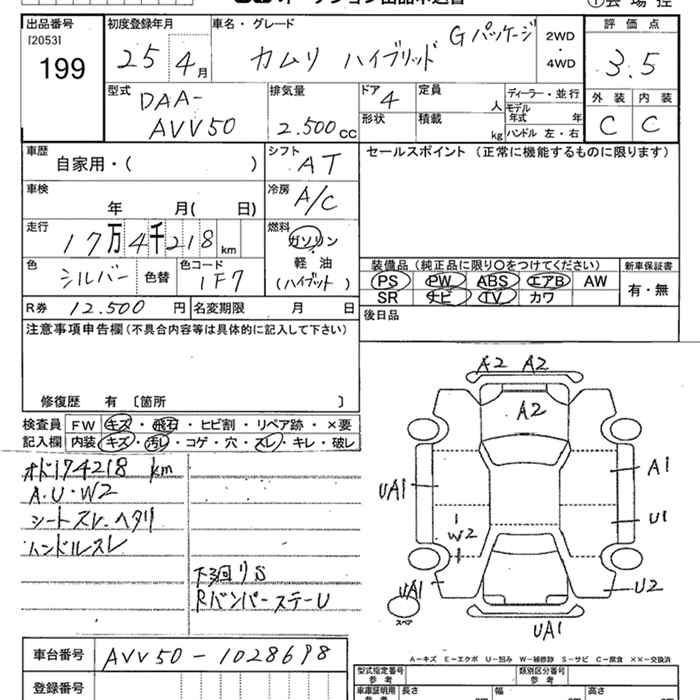 出品番号
[2053]
199
初度登録年月
25 4月
車名・グレード
カムリ ハイブリッド Gパッケージ
2WD
・
4WD
評価点
3.5
外装 内装
C C
型式
DAA-
AVV50
排気量
2.500cc
ドア
4
定員
人
形状
積載
kg
ディーラー・並行
モデル
年式 年
ハンドル 左・右
車歴
自家用・( )
シフト
AT
セールスポイント (正常に機能するものに限ります)
車検
年 月( 日)
冷房
A/C
走行
17万4千218km
燃料
ガソリン
軽油
(ハイブット)
色
シルバー
色替
色コード
1F7
装備品 (純正品に限り〇をつけてください)
PS PW ABS エアB AW
SR ナビ TV カワ
新車保証書
有・無
R券 12.500円
名変期限 月 日
後日品
注意事項申告欄(不具合内容等は具体的に記入して下さい)
修復歴 有 [箇所 ]
検査員
記入欄
FW キズ・飛石・ヒビ割・リペア跡・×要
内装 キズ・汚レ・コゲ・穴・スレ・キレ・破レ
オド174218 km
A・U・W2
シートスレ・ヘタリ
ハンドルスレ
下廻りS
RバンパーステーU
A2 A2
A2
UA1
A1
W2
U1
UA1
U2
スペア
UA1
A-キズ E-エクボ U-凹み W-補修跡 S-サビ C-腐食 ××-交換済
車台番号
AVV50-1028698
登録番号
型式指定番号
参考
類別区分番号
参考
車庫証明用
参考
長さ
幅
高さ